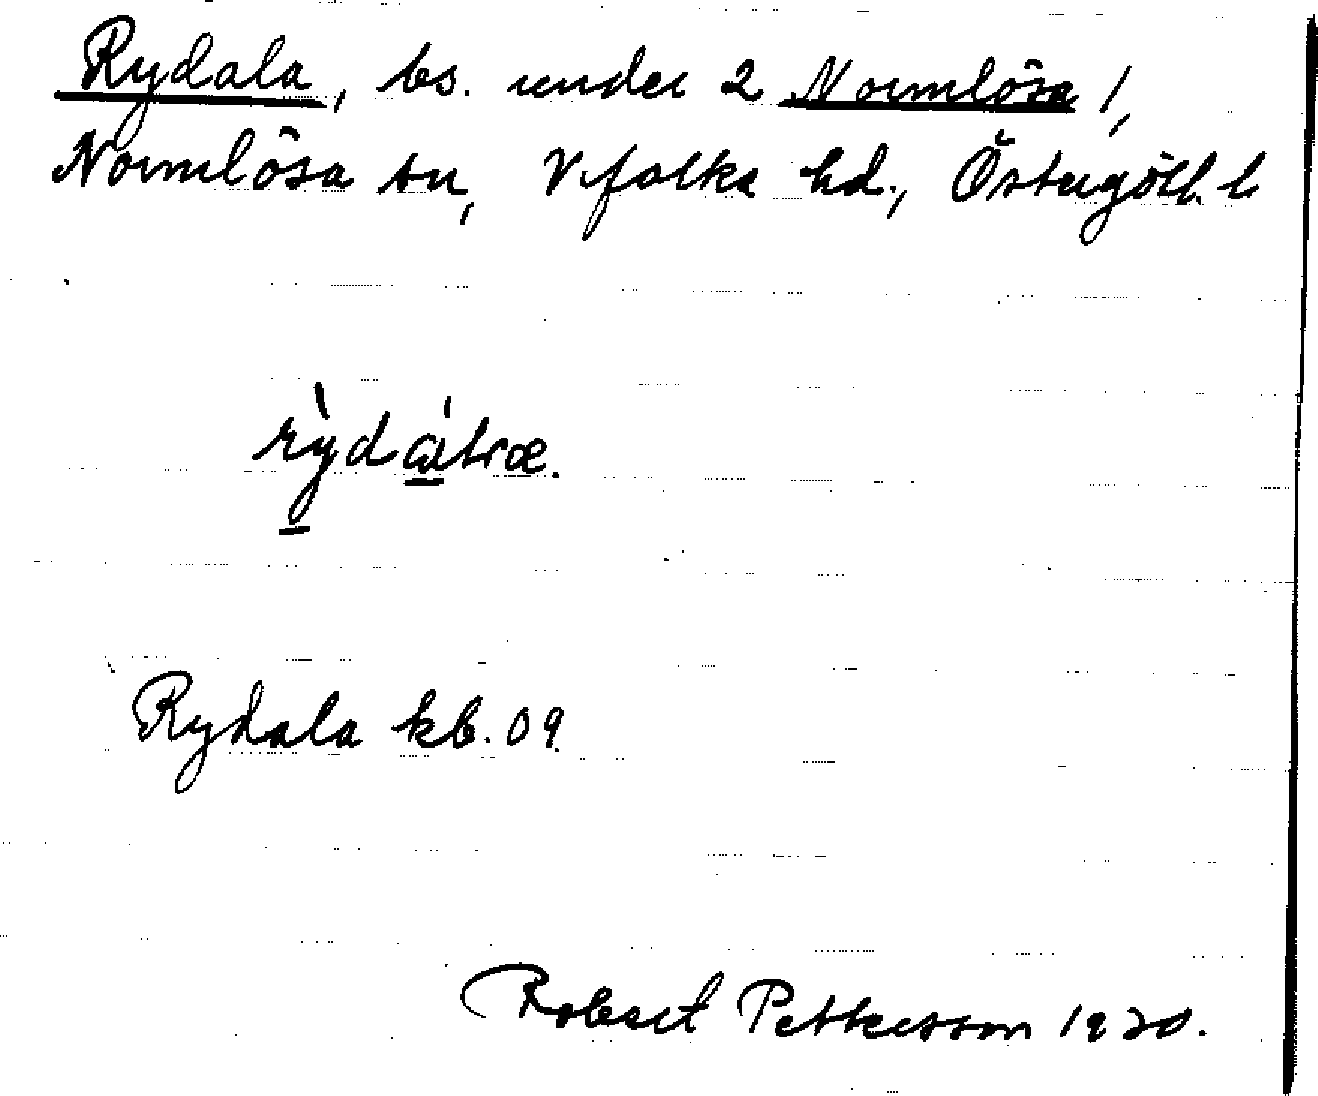 Rydala, bs. under 2 Normlösa 1,
Normlösa sn, Vifolka hd., Östergötl. l
Rydala kb. 09.
Robert Pettersson 1930.